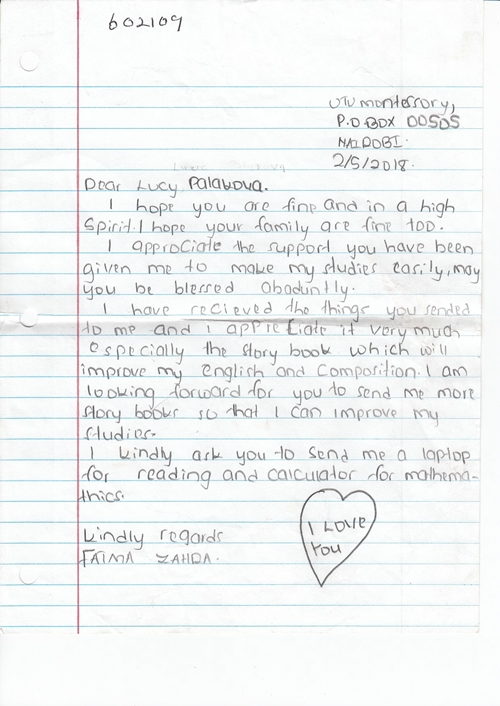 602109
UTU montessory,
P.O BOX 00505
NAIROBI.
2/5/2018.
Dear Lucy Palakova.
I hope you are fine and in a high
Spirit. I hope your family are fine too.
I approciate the support you have been
given me to make my studies easily, may
you be blessed abaduntly.
I have recieved the things you sended
to me and i appreciate it very much
especially the story book which will
improve my English and Composition. I am
looking forward for you to send me more
story books so that I can improve my
studies.
I kindly ask you to send me a laptop
for reading and calculator for mathema-
thics.
Kindly regards
FATMA ZAHDA.
I LOVE
You